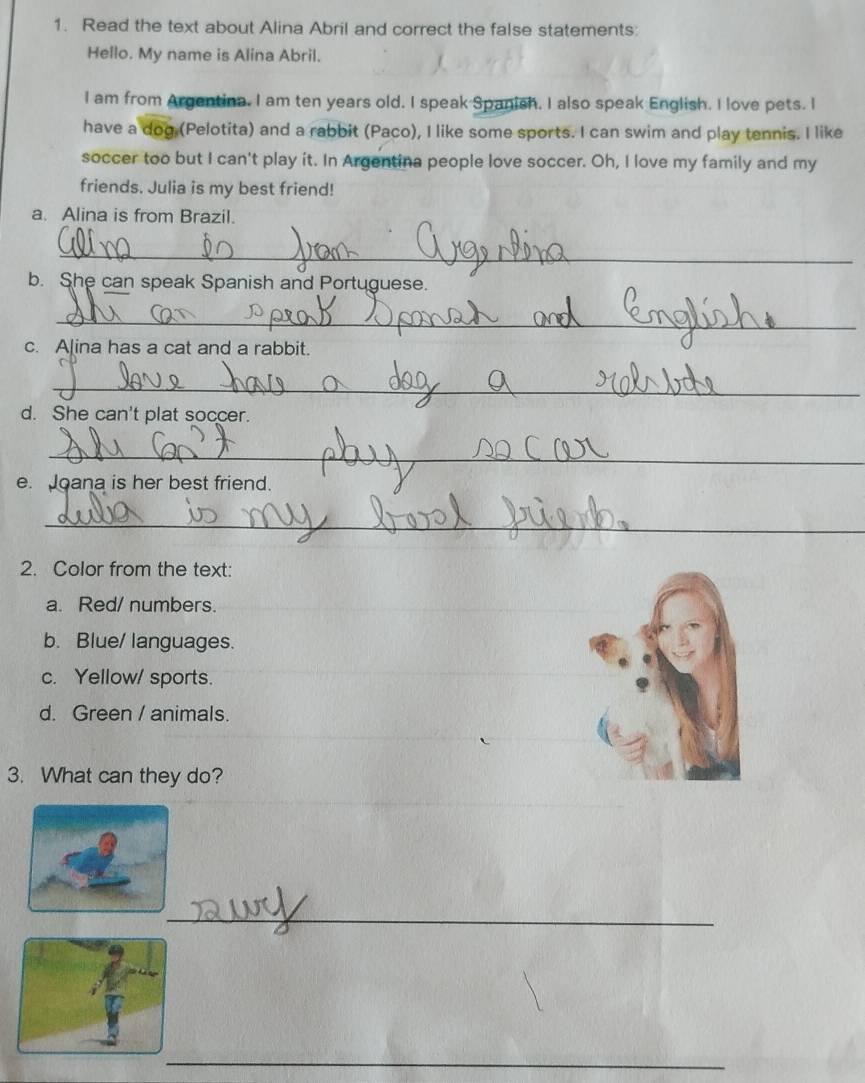 1. Read the text about Alina Abril and correct the false statements:
Hello. My name is Alina Abril.
I am from Argentina. I am ten years old. I speak Spanish. I also speak English. I love pets. I
have a dog (Pelotita) and a rabbit (Paco), I like some sports. I can swim and play tennis. I like
soccer too but I can't play it. In Argentina people love soccer. Oh, I love my family and my
friends. Julia is my best friend!
a. Alina is from Brazil.
Alina is from Argentina
b. She can speak Spanish and Portuguese.
She can speak Spanish and English.
c. Alina has a cat and a rabbit.
I love have a dog a
d. She can't plat soccer.
She can't play soccer
e. Joana is her best friend.
Julia is my
2. Color from the text:
a. Red/ numbers.
b. Blue/ languages.
c. Yellow/ sports.
d. Green / animals.
3. What can they do?